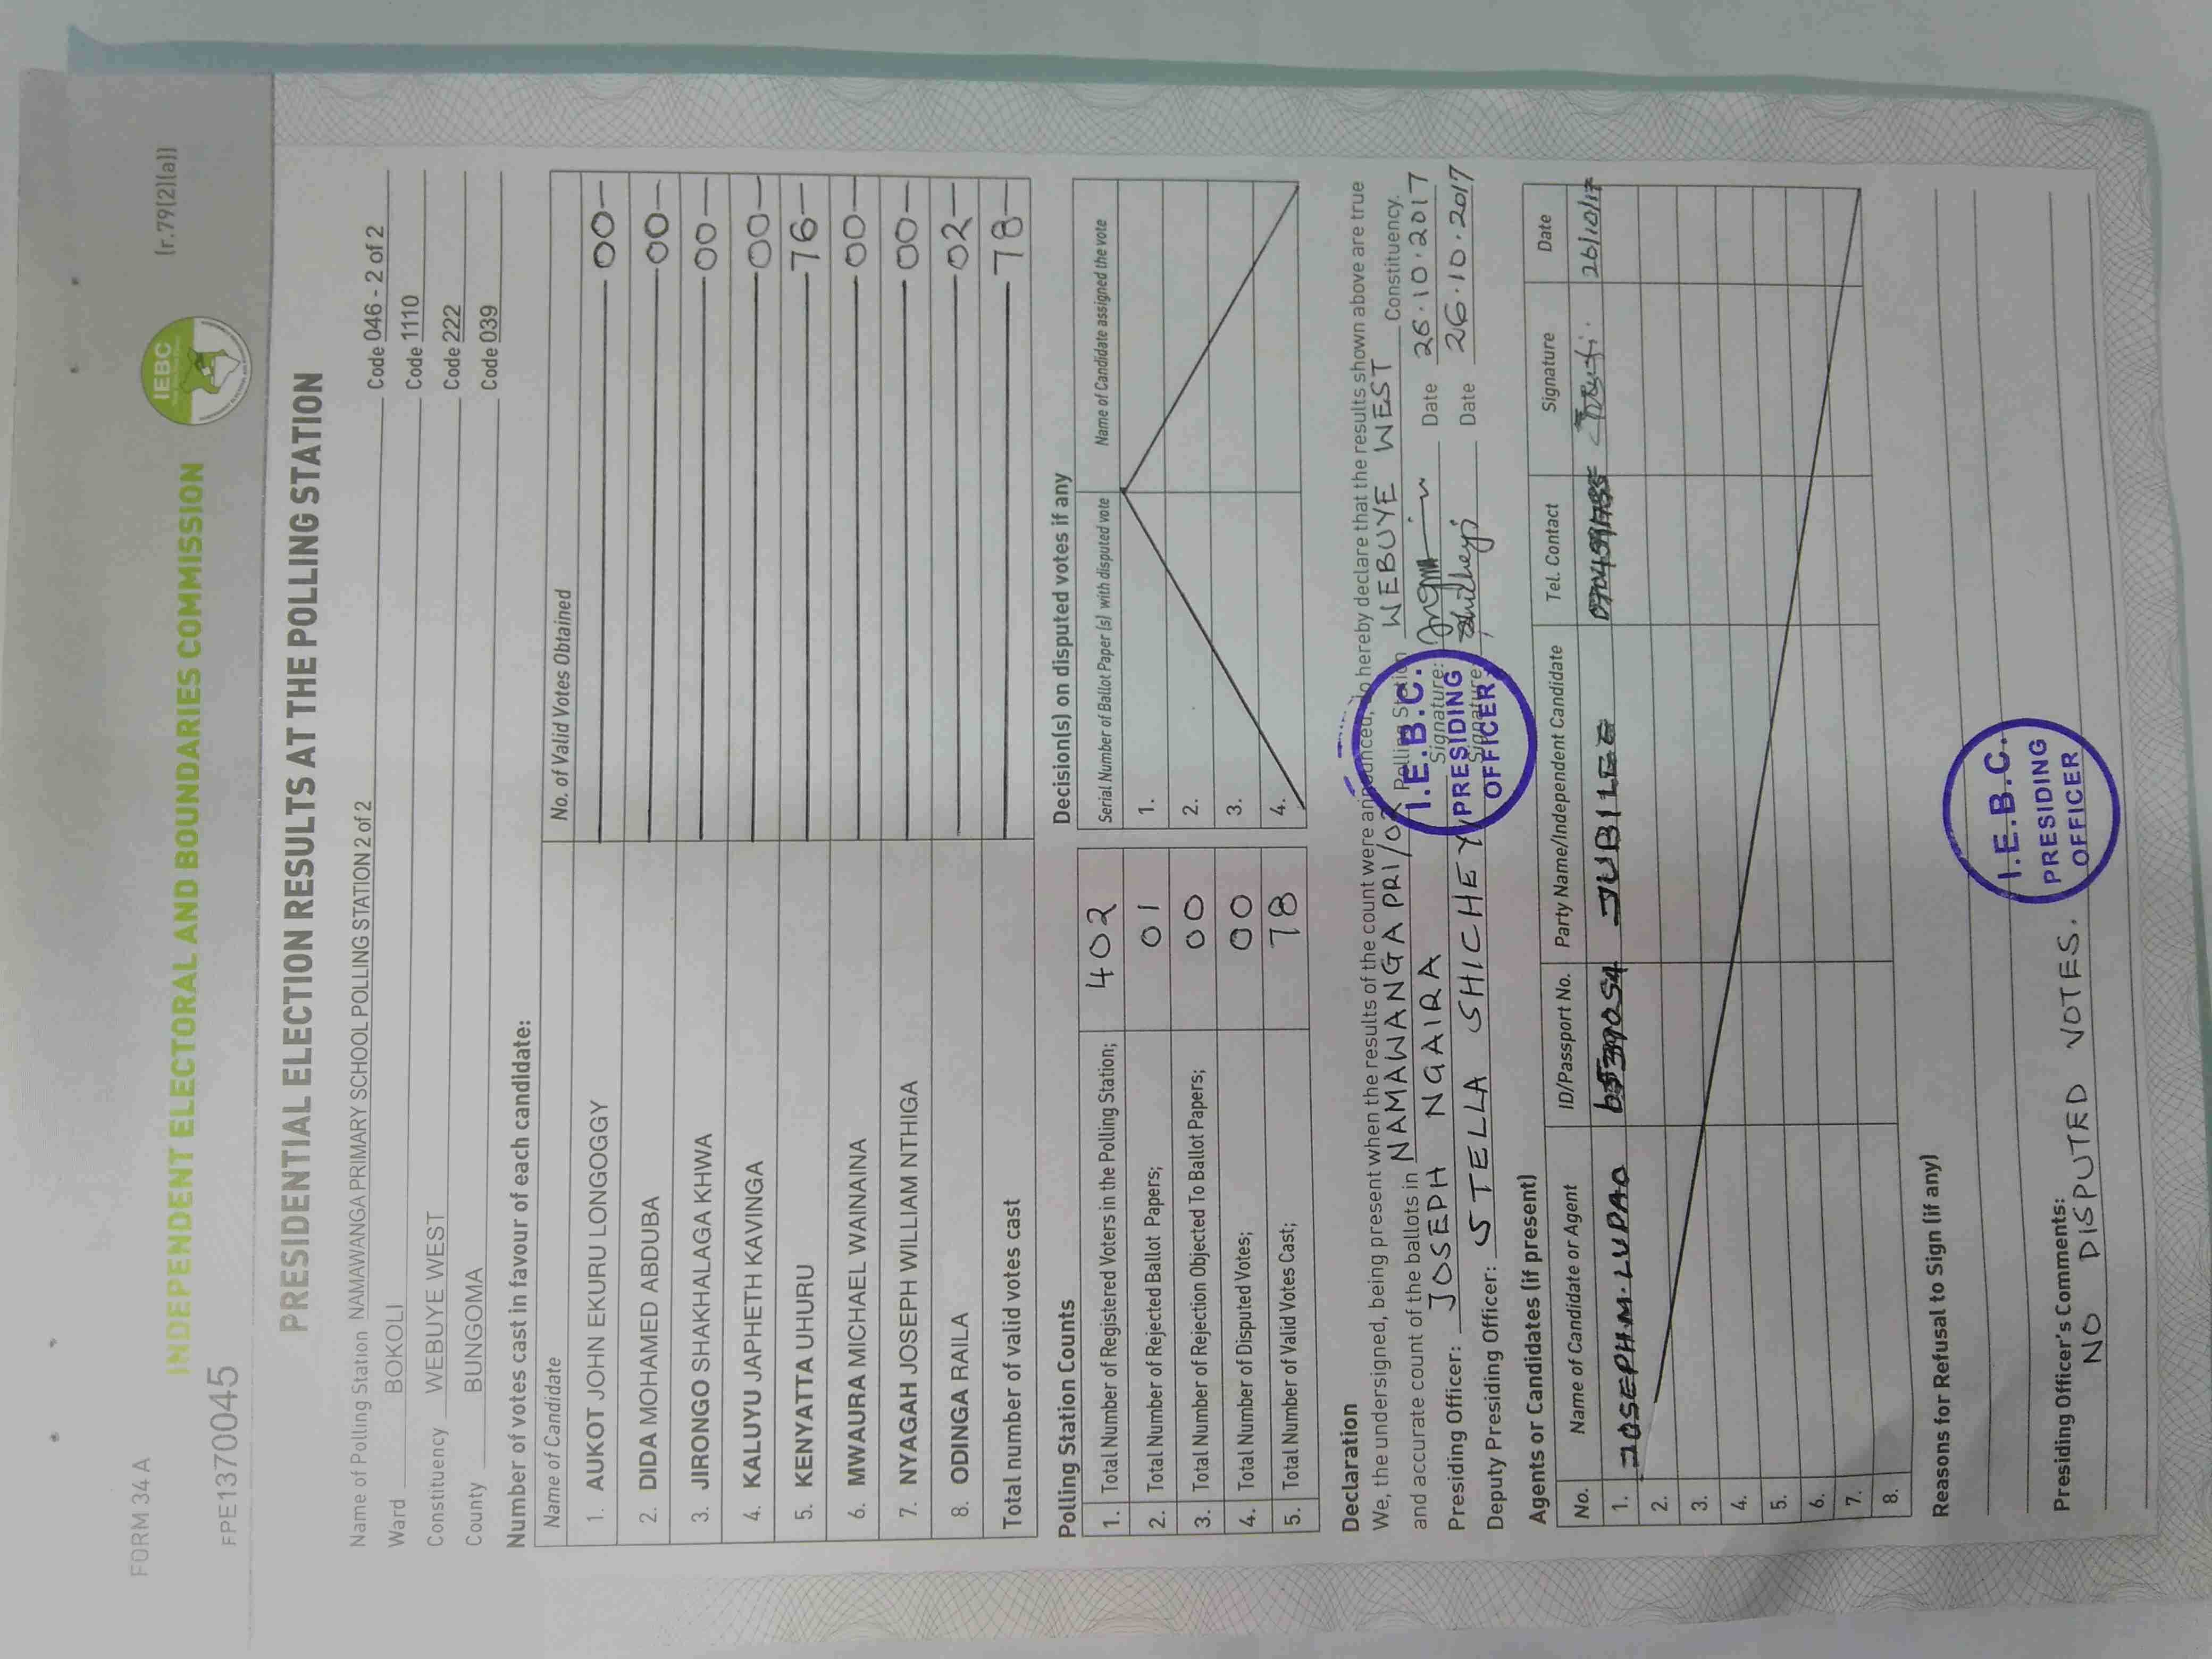 FORM 34 A
(r.79(2)(a))
FPE1370045
IEBC
INDEPENDENT ELECTORAL AND BOUNDARIES COMMISSION
PRESIDENTIAL ELECTION RESULTS AT THE POLLING STATION
Name of Polling Station NAMAWANGA PRIMARY SCHOOL POLLING STATION 2 of 2 Code 046 - 2 of 2
Ward BOKOLI Code 1110
Constituency WEBUYE WEST Code 222
County BUNGOMA Code 039
Number of votes cast in favour of each candidate:
Name of Candidate No. of Valid Votes Obtained
1. AUKOT JOHN EKURU LONGOGGY 00
2. DIDA MOHAMED ABDUBA 00
3. JIRONGO SHAKHALAGA KHWA 00
4. KALUYU JAPHETH KAVINGA 00
5. KENYATTA UHURU 76
6. MWAURA MICHAEL WAINAINA 00
7. NYAGAH JOSEPH WILLIAM NTHIGA 00
8. ODINGA RAILA 02
Total number of valid votes cast 78
Polling Station Counts
1. Total Number of Registered Voters in the Polling Station; 402
2. Total Number of Rejected Ballot Papers; 01
3. Total Number of Rejection Objected To Ballot Papers; 00
4. Total Number of Disputed Votes; 00
5. Total Number of Valid Votes Cast; 78
Decision(s) on disputed votes if any
Serial Number of Ballot Paper (s) with disputed vote Name of Candidate assigned the vote
1.
2.
3.
4.
Declaration
We, the undersigned, being present when the results of the count were announced, do hereby declare that the results shown above are true
and accurate count of the ballots in NAMAWANGA PRI/02 Polling Station WEBUYE WEST Constituency.
Presiding Officer: JOSEPH NGAIRA Signature: Date 26.10.2017
Deputy Presiding Officer: STELLA SHICHEYI Signature: Date 26.10.2017
I.E.B.C.
PRESIDING
OFFICER
Agents or Candidates (if present)
No. Name of Candidate or Agent ID/Passport No. Party Name/Independent Candidate Tel. Contact Signature Date
1. JOSEPH M. LUDAO JUBILEE 26/10/17
2.
3.
4.
5.
6.
7.
8.
Reasons for Refusal to Sign (if any)
Presiding Officer's Comments:
NO DISPUTED VOTES.
I.E.B.C.
PRESIDING
OFFICER